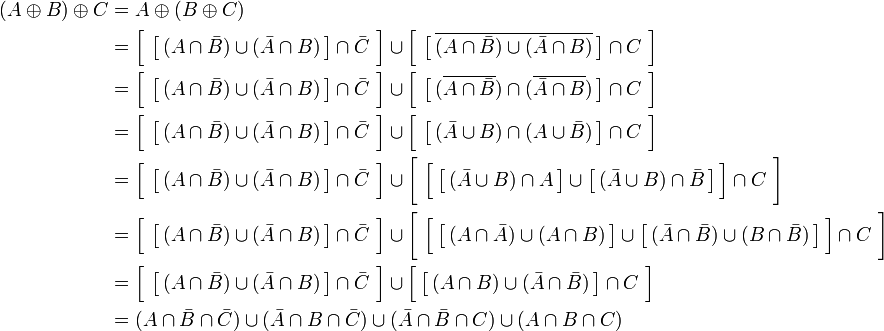 (A ⊕ B) ⊕ C = A ⊕ (B ⊕ C)
= [ [ (A ∩ B̄) ∪ (Ā ∩ B) ] ∩ C̄ ] ∪ [ [ \overline{(A ∩ B̄) ∪ (Ā ∩ B)} ] ∩ C ]
= [ [ (A ∩ B̄) ∪ (Ā ∩ B) ] ∩ C̄ ] ∪ [ [ (\overline{A ∩ B̄}) ∩ (\overline{Ā ∩ B}) ] ∩ C ]
= [ [ (A ∩ B̄) ∪ (Ā ∩ B) ] ∩ C̄ ] ∪ [ [ (Ā ∪ B) ∩ (A ∪ B̄) ] ∩ C ]
= [ [ (A ∩ B̄) ∪ (Ā ∩ B) ] ∩ C̄ ] ∪ [ [ [ (Ā ∪ B) ∩ A ] ∪ [ (Ā ∪ B) ∩ B̄ ] ] ∩ C ]
= [ [ (A ∩ B̄) ∪ (Ā ∩ B) ] ∩ C̄ ] ∪ [ [ [ (A ∩ Ā) ∪ (A ∩ B) ] ∪ [ (Ā ∩ B̄) ∪ (B ∩ B̄) ] ] ∩ C ]
= [ [ (A ∩ B̄) ∪ (Ā ∩ B) ] ∩ C̄ ] ∪ [ [ (A ∩ B) ∪ (Ā ∩ B̄) ] ∩ C ]
= (A ∩ B̄ ∩ C̄) ∪ (Ā ∩ B ∩ C̄) ∪ (Ā ∩ B̄ ∩ C) ∪ (A ∩ B ∩ C)